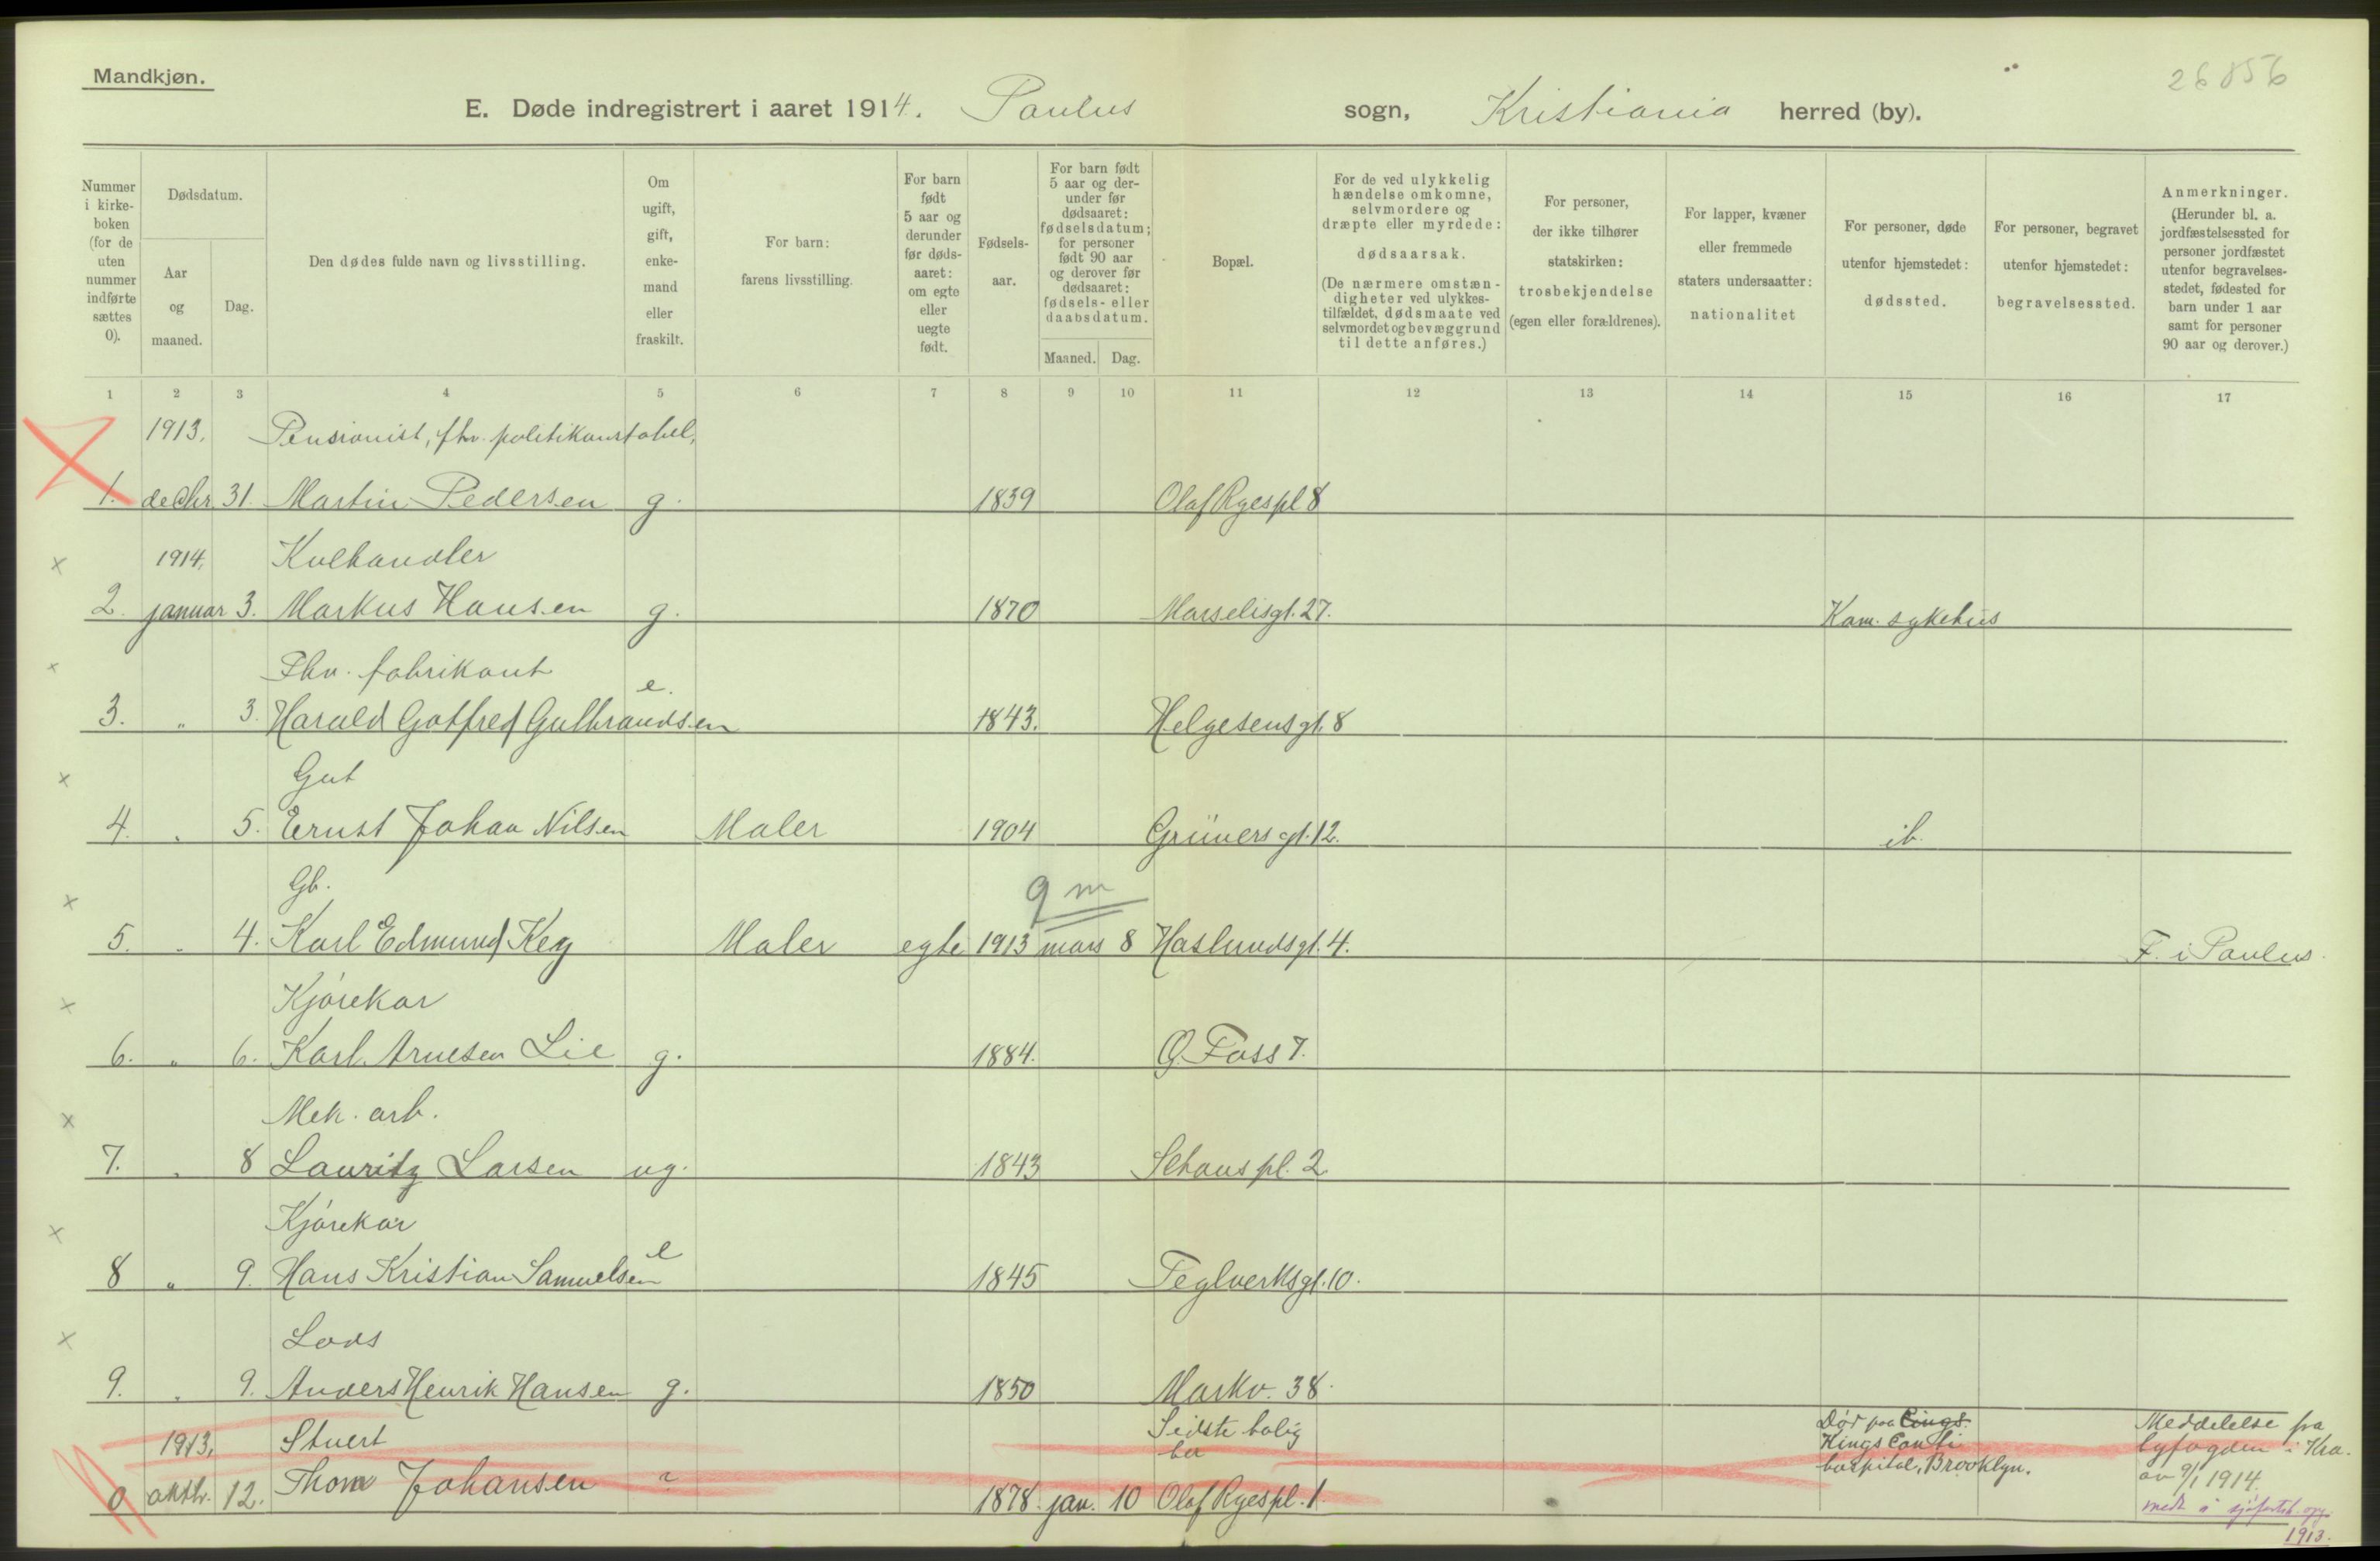 Mandkjøn.
26856
E. Døde indregistrert i aaret 1914. Paulus sogn, Kristiania herred (by).
Nummer i kirkeboken (for de uten nummer indførte sættes 0).
Dødsdatum.
Aar og maaned.
Dag.
Den dødes fulde navn og livsstilling.
Om ugift, gift, enkemand eller fraskilt.
For barn: farens livsstilling.
For barn født 5 aar og derunder før dødsaaret: om egte eller uegte født.
Fødselsaar.
For barn født 5 aar og derunder før dødsaaret: fødselsdatum; for personer født 90 aar og derover før dødsaaret: fødsels- eller daabsdatum.
Maaned. Dag.
Bopæl.
For de ved ulykkelig hændelse omkomne, selvmordere og dræpte eller myrdede: dødsaarsak. (De nærmere omstændigheter ved ulykkestilfældet, dødsmaate ved selvmordet og bevæggrund til dette anføres.)
For personer, der ikke tilhører statskirken: trosbekjendelse (egen eller forældrenes).
For lapper, kvæner eller fremmede staters undersaatter: nationalitet
For personer, døde utenfor hjemstedet: dødssted.
For personer, begravet utenfor hjemstedet: begravelsessted.
Anmerkninger. (Herunder bl. a. jordfæstelsessted for personer jordfæstet utenfor begravelsesstedet, fødested for barn under 1 aar samt for personer 90 aar og derover.)
1 2 3 4 5 6 7 8 9 10 11 12 13 14 15 16 17
1913. Pensionist, fhv. politikonstabel,
1. decbr. 31. Martin Pedersen g. 1839 Olaf Ryespl 8
1914. Kulhandler
2. januar 3. Markus Hansen g. 1870 Marselisgt. 27. Kom. sykehus
Fhv. fabrikant
3. " 3. Harald Gotfred Gulbrandsen e. 1843. Helgesensgt. 8
Gut
4. " 5. Ernst Johan Nilsen Maler 1904 Grünersgt. 12. ib.
Gb. 9 m
5. " 4. Karl Edmund Key Maler egte 1913 mars 8 Haslundsgt. 4. F. i Paulus.
Kjørekar
6. " 6. Karl Arnesen Lie g. 1884. Ø. Foss 7.
Mek. arb.
7. " 8 Lauritz Larsen ug. 1843 Schous pl. 2
Kjørekar
8 " 9. Hans Kristian Samuelsen e 1845 Teglverksgt. 10.
Lods
9. " 9. Anders Henrik Hansen g. 1850 Markv. 38.
1913. Stuert Sidste bolig her Død paa Kings Conti hospital, Brooklyn. Meddelelse fra byfogden i Kra. av 9/1 1914.
0 oktbr. 12. Thom Johansen ? 1878. jan. 10 Olaf Ryespl. 1. medt. i sjøfartsk. opg. 1913.